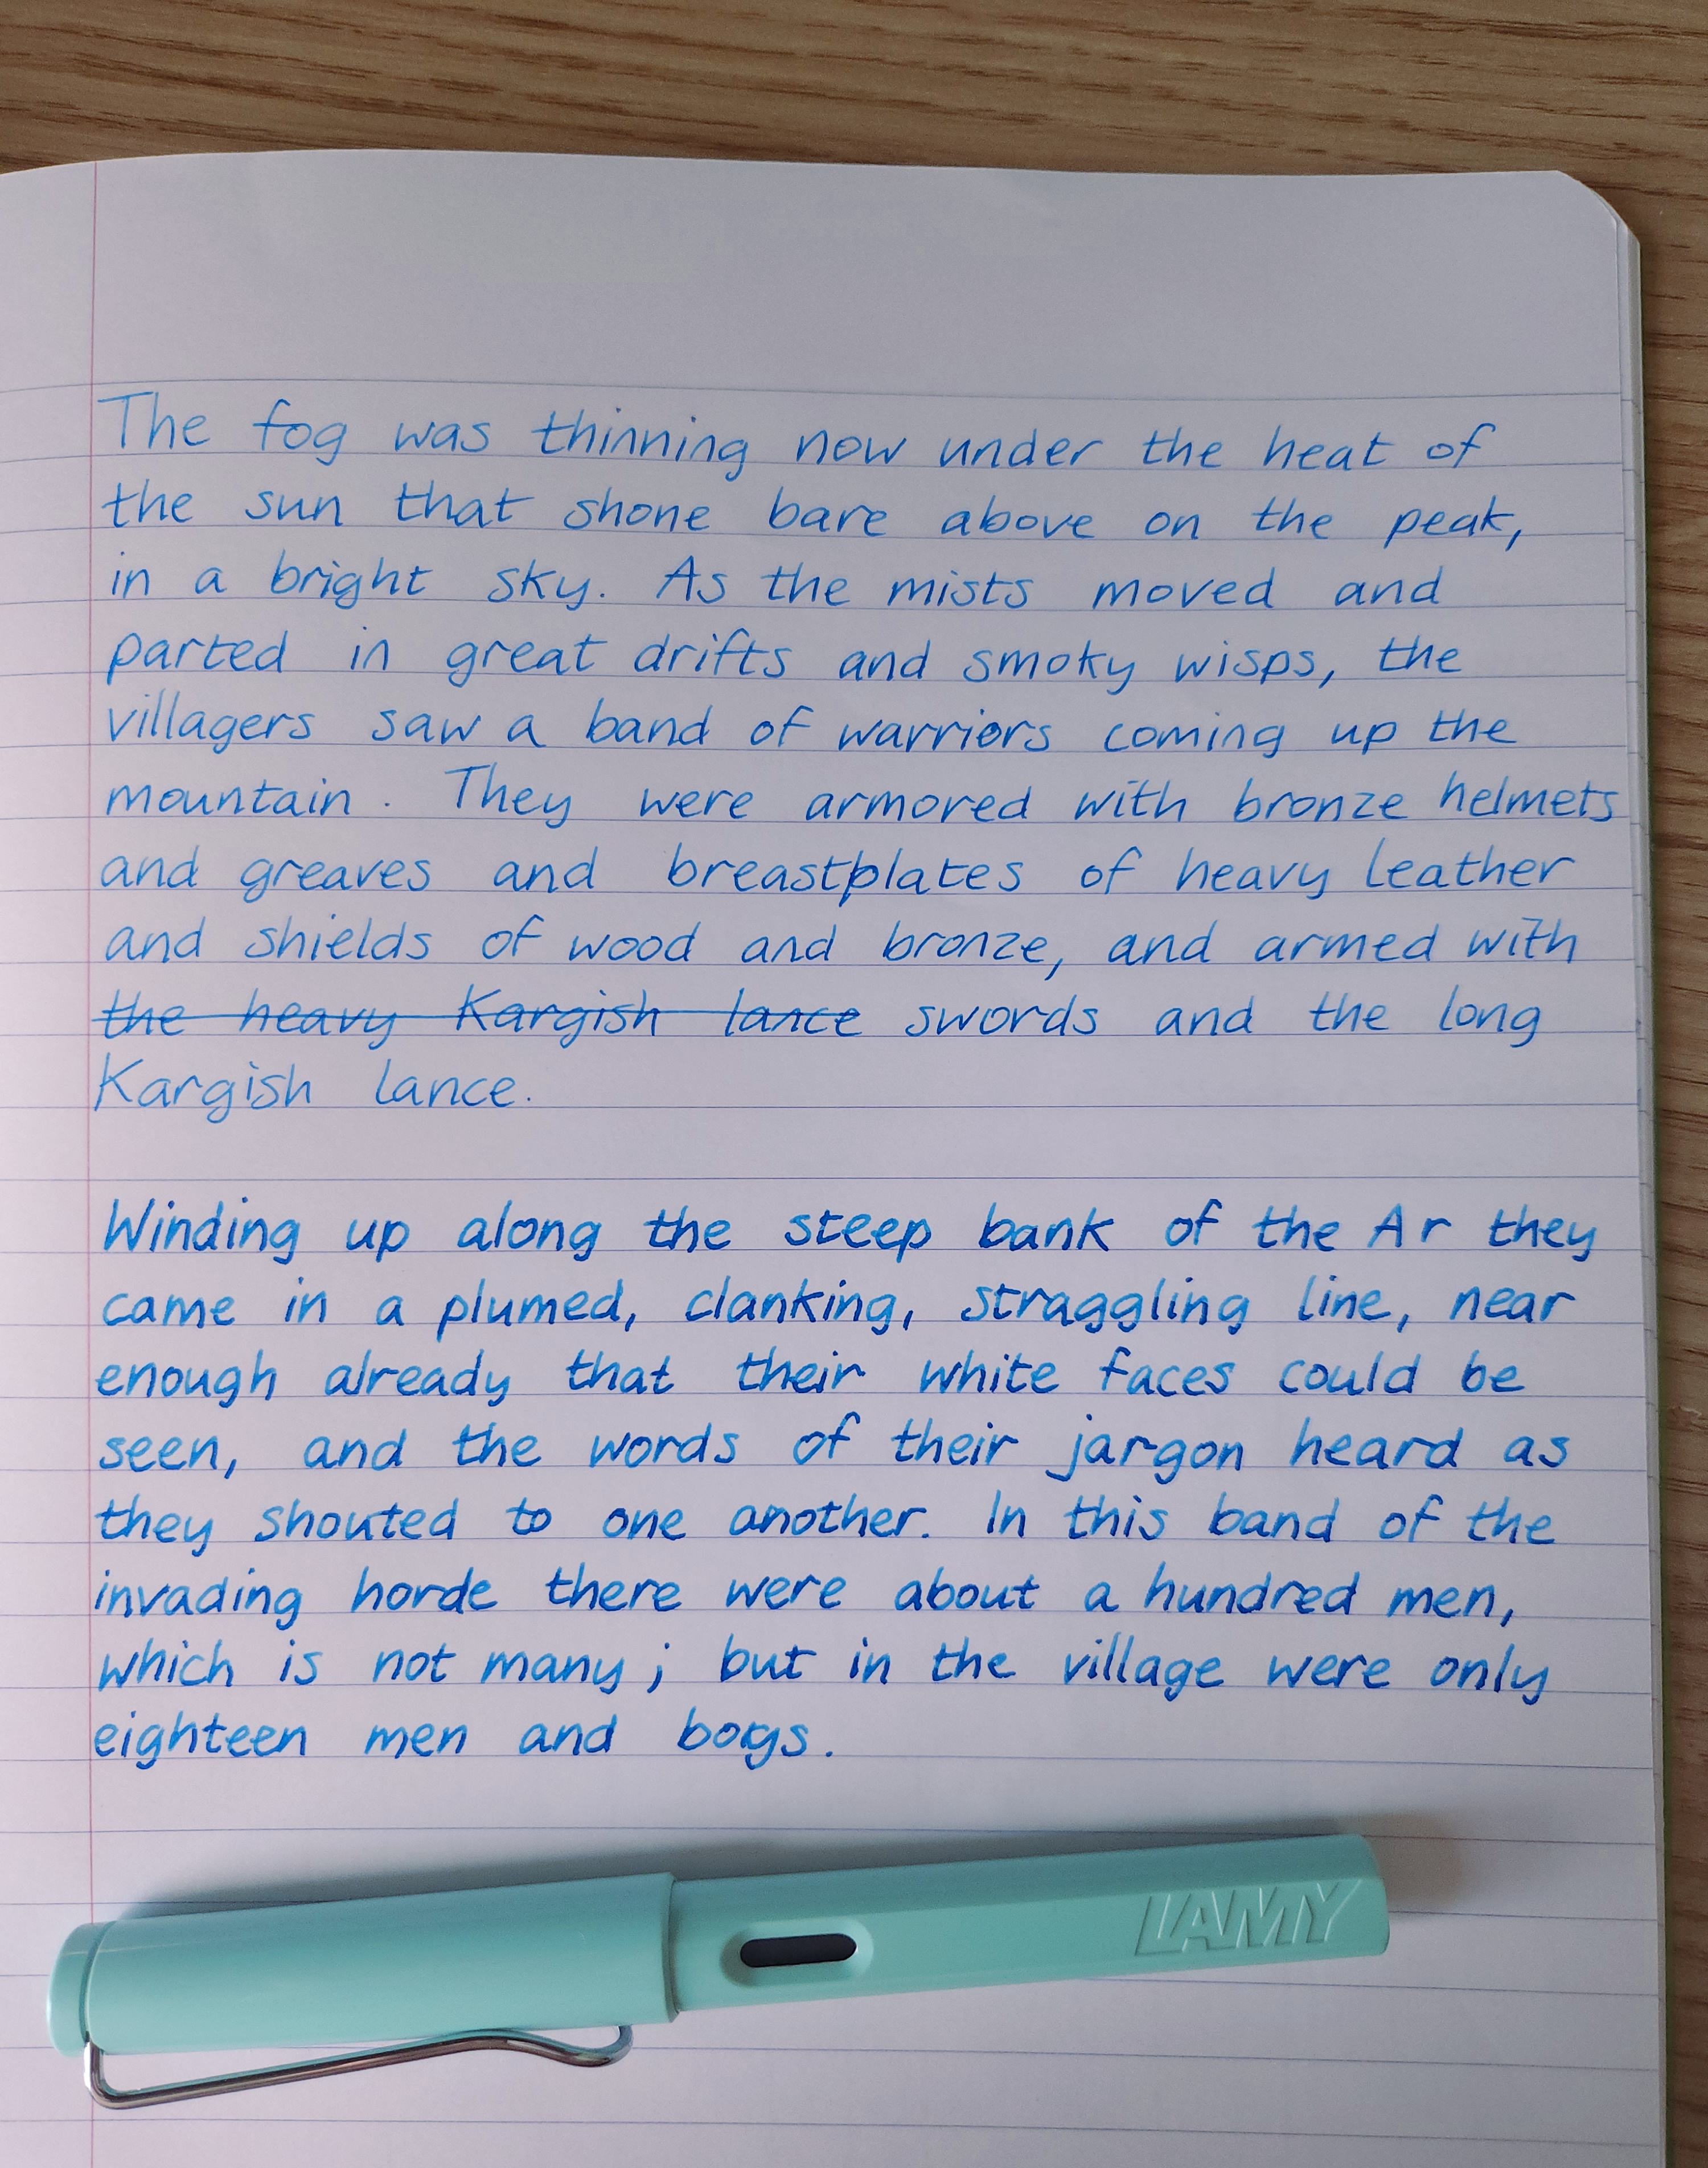 The fog was thinning now under the heat of
the sun that shone bare above on the peak,
in a bright sky. As the mists moved and
parted in great drifts and smoky wisps, the
villagers saw a band of warriors coming up the
mountain. They were armored with bronze helmets
and greaves and breastplates of heavy leather
and shields of wood and bronze, and armed with
the heavy Kargish lance swords and the long
Kargish lance.
Winding up along the steep bank of the Ar they
came in a plumed, clanking, straggling line, near
enough already that their white faces could be
seen, and the words of their jargon heard as
they shouted to one another. In this band of the
invading horde there were about a hundred men,
which is not many; but in the village were only
eighteen men and boys.
LAMY